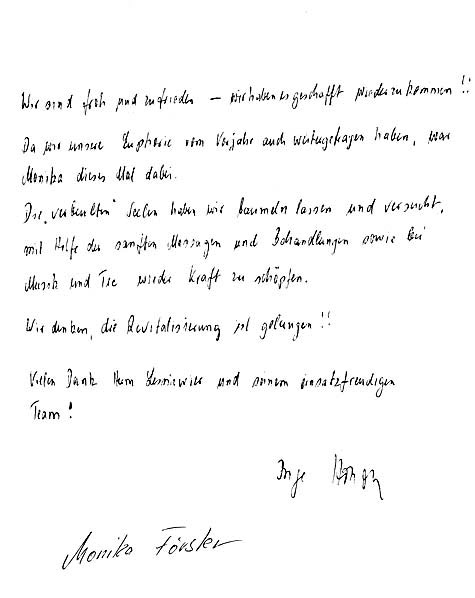 Wir sind froh und zufrieden – wir haben es geschafft wiederzukommen!!
Da wir unsere Euphorie vom Vorjahr auch weitergetragen haben, war
Monika dieses Mal dabei.
Die „verbeulten" Seelen haben wir baumeln lassen und versucht,
mit Hilfe der sanften Massagen und Behandlungen sowie bei
Musik und Tee wieder Kraft zu schöpfen.
Wir denken, die Revitalisierung ist gelungen!!
Vielen Dank Herrn und seinem einsatzfreudigen
Team!
Inge
Monika Förster